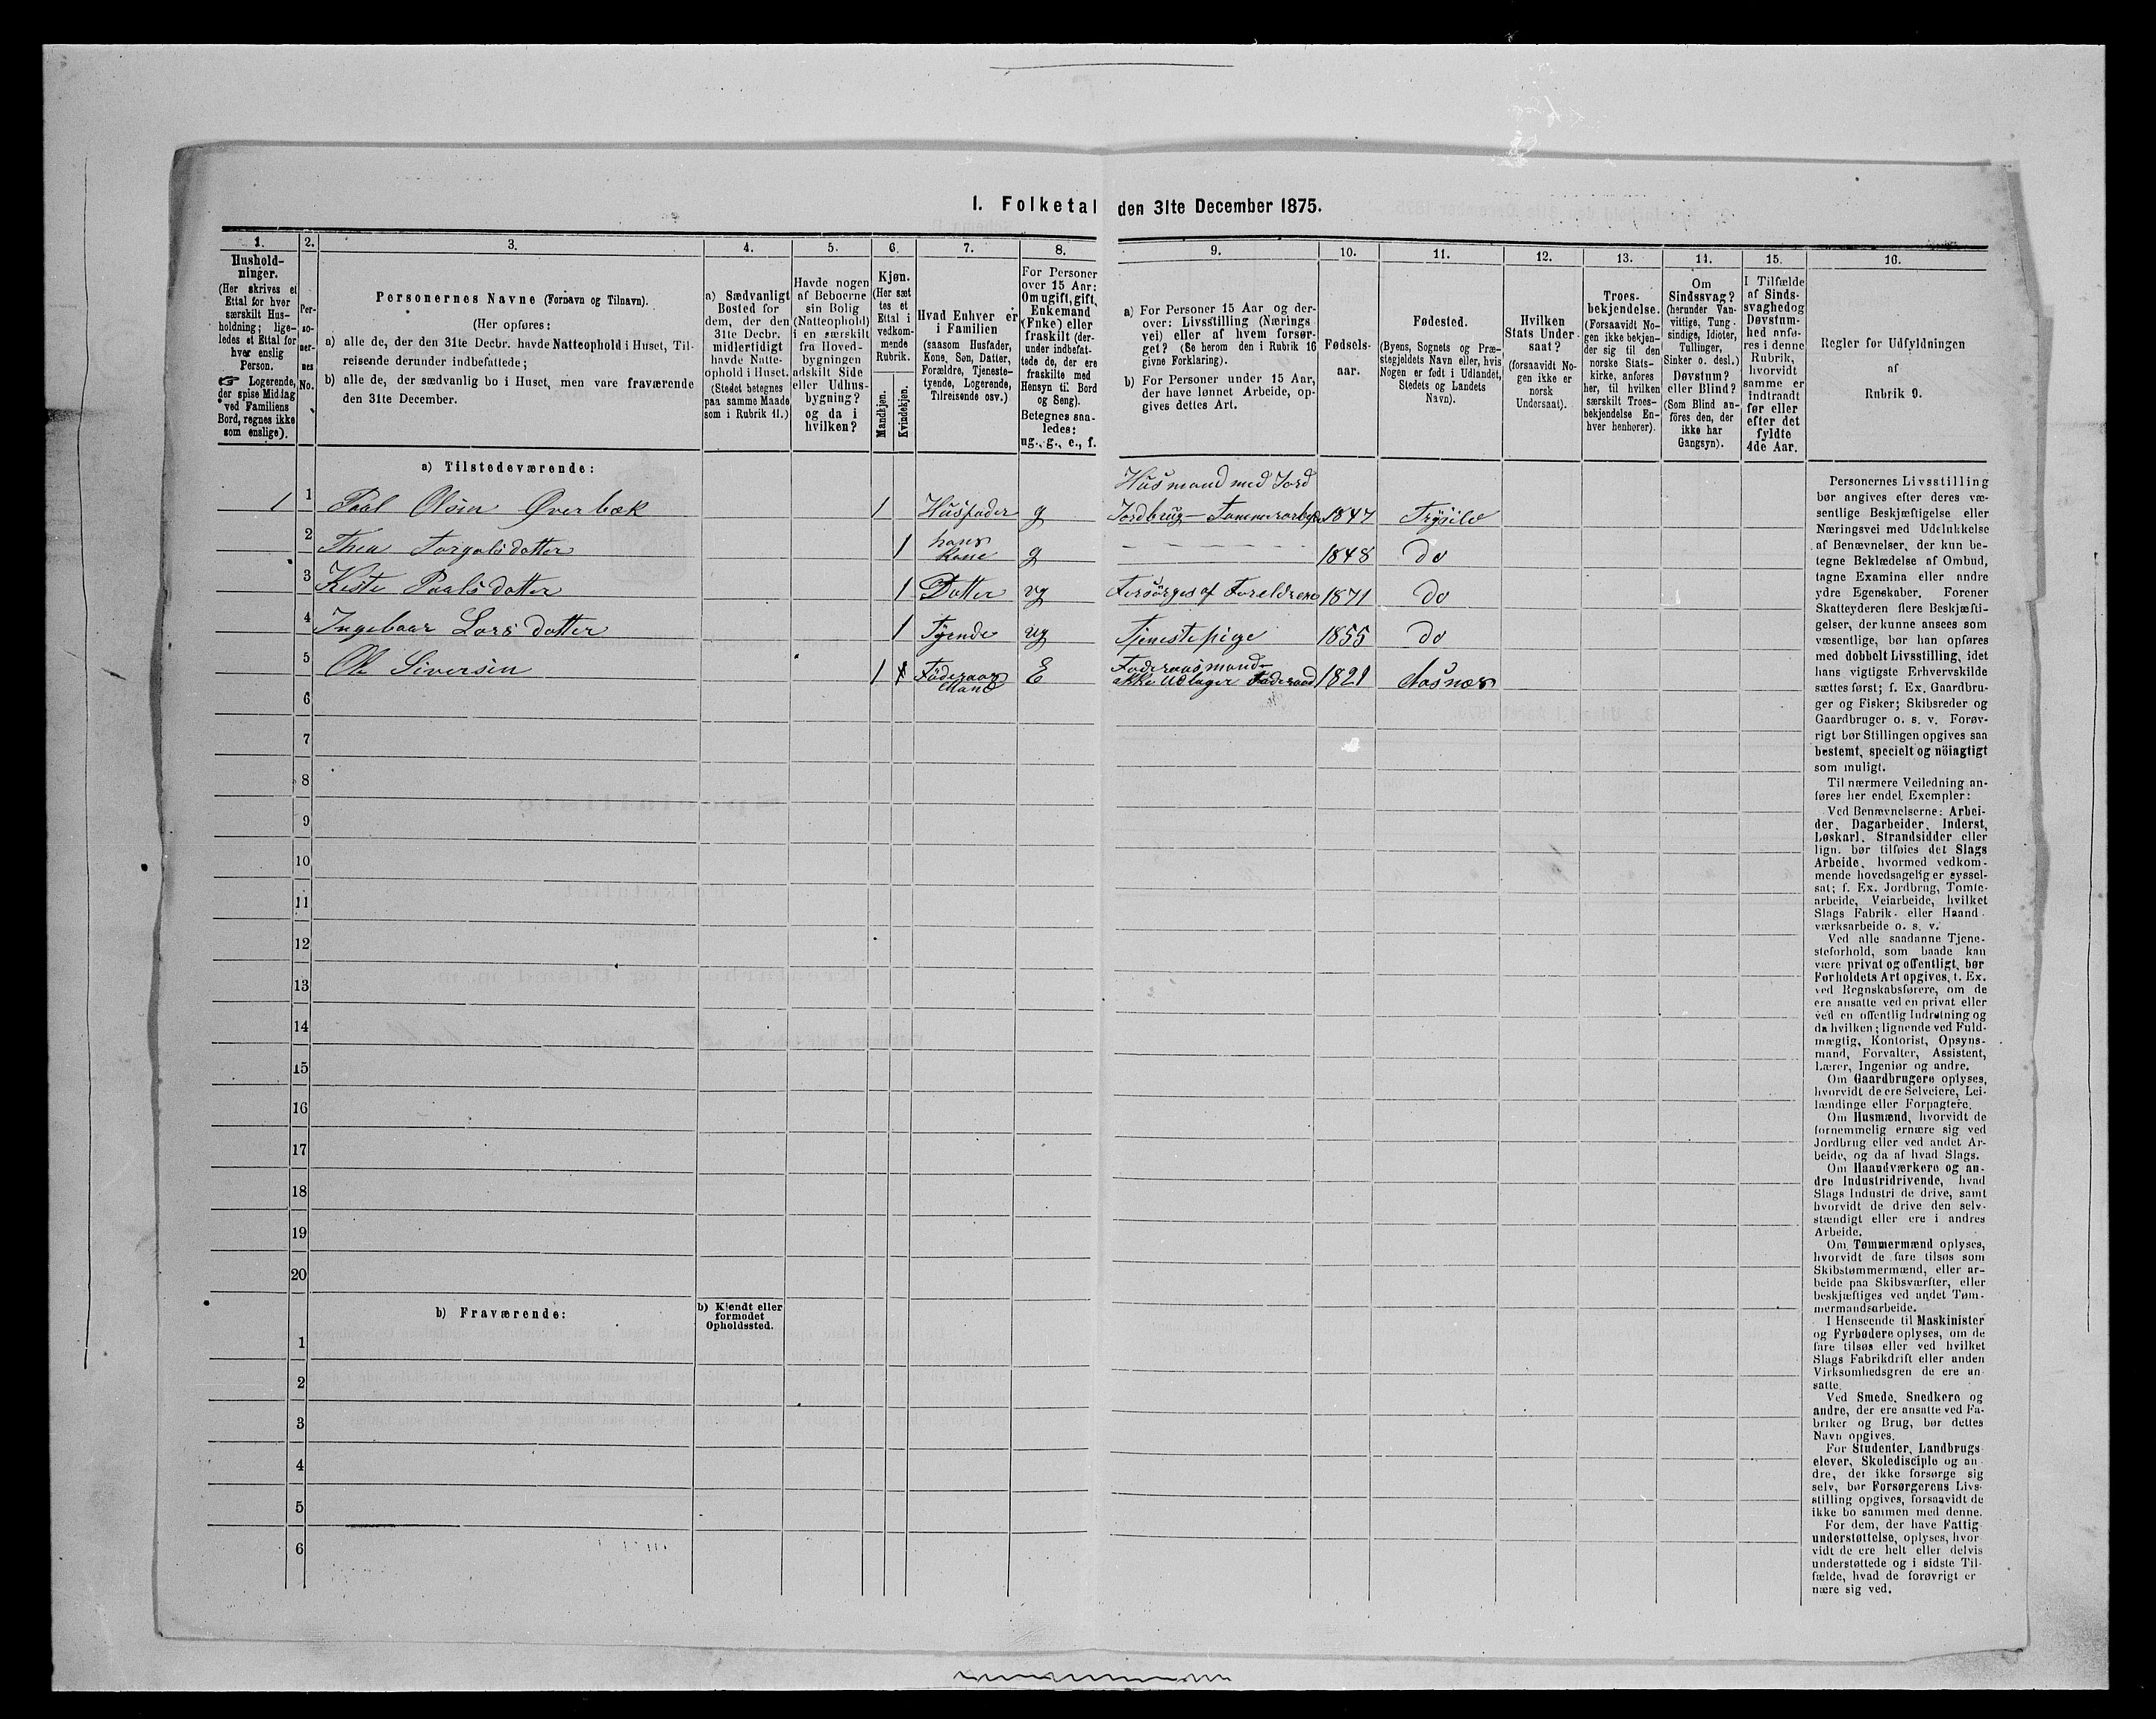 I. Folketal den 31te December 1875.
1.
Hushold-
ninger.
(Her skrives et
Ettal for hver
særskilt Hus-
holdning; lige-
ledes et Ettal for
hver enslig
Person.
☞ Logerende,
der spise Middag
ved Familiens
Bord, regnes ikke
som enslige).
2.
Per-
so-
ner-
nes
No.
3.
Personernes Navne (Fornavn og Tilnavn).
(Her opføres:
a) alle de, der den 31te Decbr. havde Natteophold i Huset, Til-
reisende derunder indbefattede;
b) alle de, der sædvanlig bo i Huset, men vare fraværende
den 31te December.
4.
a) Sædvanligt
Bosted for
dem, der den
31te Decbr.
midlertidigt
havde Natte-
ophold i Huset.
(Stedet betegnes
paa samme Maade
som i Rubrik 11.)
5.
Havde nogen
af Beboerne
sin Bolig
(Natteophold)
i en særskilt
fra Hoved-
bygningen
adskilt Side
eller Udhus-
bygning?
og da i
hvilken?
6.
Kjøn.
(Her sæt
tes et
Ettal i
vedkom-
mende
Rubrik.
Mandkjøn.
Kvindekjøn.
7.
Hvad Enhver er
i Familien
(saasom Husfader,
Kone, Søn, Datter,
Forældre, Tjeneste-
tyende, Logerende,
Tilreisende osv.)
8.
For Personer
over 15 Aar:
Om ugift, gift,
Enkemand
(Enke) eller
fraskilt (der-
under indbefat-
tede de, der ere
fraskilte med
Hensyn til Bord
og Seng).
Betegnes saa-
ledes:
ug., g., e., f.
9.
a) For Personer 15 Aar og der-
over: Livsstilling (Nærings
vei) eller af hvem forsør-
get? (Se herom den i Rubrik 16
givne Forklaring).
b) For Personer under 15 Aar,
der have lønnet Arbeide, op-
gives dettes Art.
10.
Fødsels-
aar.
11.
Fødested.
(Byens, Sognets og Præ-
stegjeldets Navn eller, hvis
Nogen er født i Udlandet,
Stedets og Landets
Navn).
12.
Hvilken
Stats Under-
saat?
(forsaavidt No-
gen ikke er
norsk
Undersaat).
13.
Troes-
bekjendelse.
(Forsaavidt No-
gen ikke bekjen-
der sig til den
norske Stats-
kirke, anføres
her, til hvilken
særskilt Troes-
bekjendelse En-
hver henhører).
14.
Om
Sindssvag?
(herunder Van-
vittige, Tung-
sindige, Idioter,
Tullinger,
Sinker o. desl.)
Døvstum?
eller Blind?
(Som Blind an-
føres den, der
ikke har
Gangsyn).
15.
I Tilfælde
af Sinds-
svaghed og
Døvstum-
hed anfø-
res i denne
Rubrik,
hvorvidt
samme er
indtraadt
før eller
efter det
fyldte
4de Aar.
16.
Regler for Udfyldningen
af
Rubrik 9.
a) Tilstedeværende:
Husmand med Jord
1 1 Paal Olsen Øverbæk 1 Husfader g Jordbrug - Tømmerarbeide 1847 Trysild
2 Thea Torgalsdatter 1 hans Kone g 1848 do
3 Kiste Paalsdatter 1 Datter ug Forsørges af Foreldrene 1871 do
4 Ingebaar Larsdatter 1 Tyende ug Tjenestepige 1855 do
5 Ole Siversen 1 Föderaads Mand E Föderaadsmand ikke Udlagt Föderaad 1821 Aasnæs
6
7
8
9
10
11
12
13
14
15
16
17
18
19
20
b) Fraværende:
b) Kjendt eller
formodet
Opholdssted.
1
2
3
4
5
6
Personernes Livsstilling
bør angives efter deres væ-
sentlige Beskjæftigelse eller
Næringsvei med Udelukkelse
af Benævnelser, der kun be-
tegne Beklædelse af Ombud,
tagne Examina eller andre
ydre Egenskaber. Forener
Skatteyderen flere Beskjæfti-
gelser, der kunne ansees som
væsentlige, bør han opføres
med dobbelt Livsstilling, idet
hans vigtigste Erhvervskilde
sættes først; f. Ex. Gaardbru-
ger og Fisker; Skibsreder og
Gaardbruger o. s. v. Forøv-
rigt bør Stillingen opgives saa
bestemt, specielt og nöiagtigt
som muligt.
Til nærmere Veiledning an-
føres her endel Exempler:
Ved Benævnelserne: Arbei-
der, Dagarbeider, Inderst,
Løskarl, Strandsidder eller
lign. bør tilføies det Slags
Arbeide, hvormed vedkom-
mende hovedsagelig er syssel-
sat; f. Ex. Jordbrug, Tomte-
arbeide, Veiarbeide, hvilket
Slags Fabrik- eller Haand-
værksarbeide o. s. v.
Ved alle saadanne Tjene-
steforhold, som baade kan
være privat og offentligt, bør
Forholdets Art opgives, f. Ex.
ved Regnskabsførere, om de
ere ansatte ved en privat eller
ved en offentlig Indretning og
da hvilken; lignende ved Fuld-
mægtig, Kontorist, Opsyns-
mand, Forvalter, Assistent,
Lærer, Ingeniør og andre.
Om Gaardbrugere oplyses,
hvorvidt de ere Selveiere, Lei-
lændinge eller Forpagtere.
Om Husmænd, hvorvidt de
fornemmelig ernære sig ved
Jordbrug eller ved andet Ar-
beide, og da af hvad Slags.
Om Haandværkere og an-
dre Industridrivende, hvad
Slags Industri de drive, samt
hvorvidt de drive den selv-
stændigt eller ere i andres
Arbeide.
Om Tømmermænd oplyses,
hvorvidt de fare tilsøs som
Skibstømmermænd, eller ar-
beide paa Skibsværfter, eller
beskjæftiges ved andet Tøm-
mermandsarbeide.
I Henseende til Maskinister
og Fyrbødere oplyses, om de
fare tilsøs eller ved hvilket
Slags Fabrikdrift eller anden
Virksomhedsgren de ere an-
satte.
Ved Smede, Snedkere og
andre, der ere ansatte ved Fa-
briker og Brug, bør dettes
Navn opgives.
For Studenter, Landbrugs-
elever, Skoledisciple og an-
dre, der ikke forsørge sig
selv, bør Forsørgerens Livs-
stilling opgives, forsaavidt de
ikke bo sammen med denne.
For dem, der have Fattig-
understøttelse, oplyses, hvor-
vidt de ere helt eller delvis
understøttede og i sidste Til-
fælde, hvad de forøvrigt er
nære sig ved.